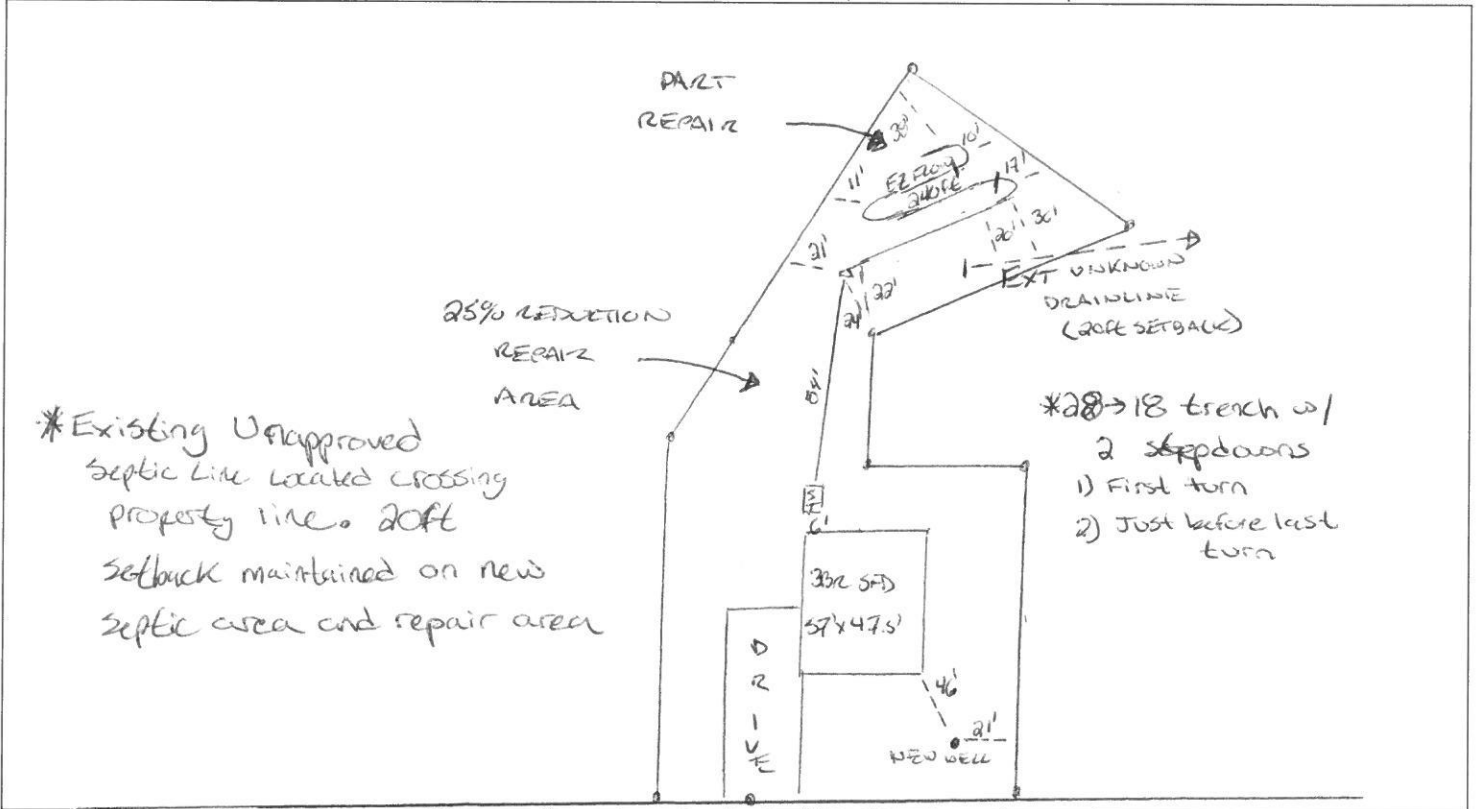 PART
REPAIR
38'
10'
11'
EZ FLOW
240ft
17'
21'
20'
30'
EXT UNKNOWN
DRAINLINE
(20ft SETBACK)
22'
24'
25% REDUCTION
REPAIR
AREA
84'
*Existing Unapproved
Septic Line Located crossing
property line. 20ft
Setback maintained on new
Septic area and repair area
*28→18 trench w/
2 stepdowns
1) First turn
2) Just before last
turn
6'
3BR SFD
57'x47.5'
DRIVE
46'
21'
NEW WELL